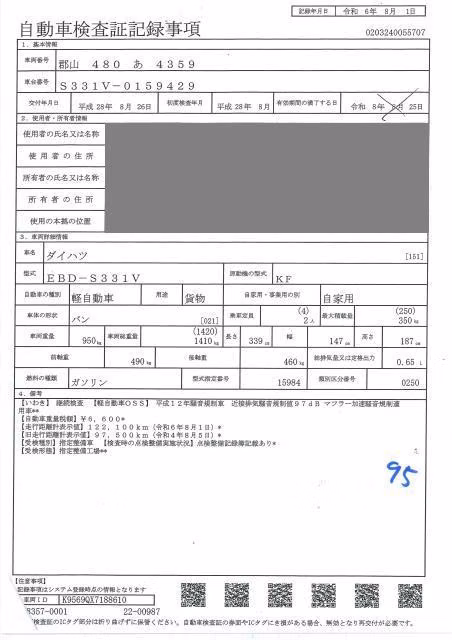 記録年月日 令和 6年 8月 1日
自動車検査証記録事項
0203240055707
1. 基本情報
車両番号 郡山 480 あ 4359
車台番号 S331V-0159429
交付年月日 平成 28年 8月 26日 初度検査年月 平成 28年 8月 有効期間の満了する日 令和 8年 8月 25日
2. 使用者・所有者情報
使用者の氏名又は名称
使用者の住所
所有者の氏名又は名称
所有者の住所
使用の本拠の位置
3. 車両詳細情報
車名 ダイハツ [151]
型式 EBD-S331V 原動機の型式 KF
自動車の種別 軽自動車 用途 貨物 自家用・事業用の別 自家用
車体の形状 バン [021] 乗車定員 (4) 2人 最大積載量 (250) 350kg
車両重量 950kg 車両総重量 (1420) 1410kg 長さ 339cm 幅 147cm 高さ 187cm
前軸重 490kg 後軸重 460kg 総排気量又は定格出力 0.65L
燃料の種類 ガソリン 型式指定番号 15984 類別区分番号 0250
4. 備考
【いわき】 継続検査 【軽自動車OSS】 平成12年騒音規制車 近接排気騒音規制値97dB マフラー加速騒音規制適
用車**
【自動車重量税額】¥6,600*
【走行距離計表示値】122,100km(令和6年8月1日)*
【旧走行距離計表示値】97,500km(令和4年8月5日)*
【受検種別】指定整備車 【検査時の点検整備実施状況】点検整備記録簿記載あり*
【受検形態】指定整備工場**
95
【注意事項】
記録事項はシステム登録時点の情報となります
車両ID K9569QX7188610
8357-0001 22-00987
検査証のICタグ部分は折り曲げずに保管ください。自動車検査証の券面やICタグにき損がある場合、無効となり再交付が必要です。